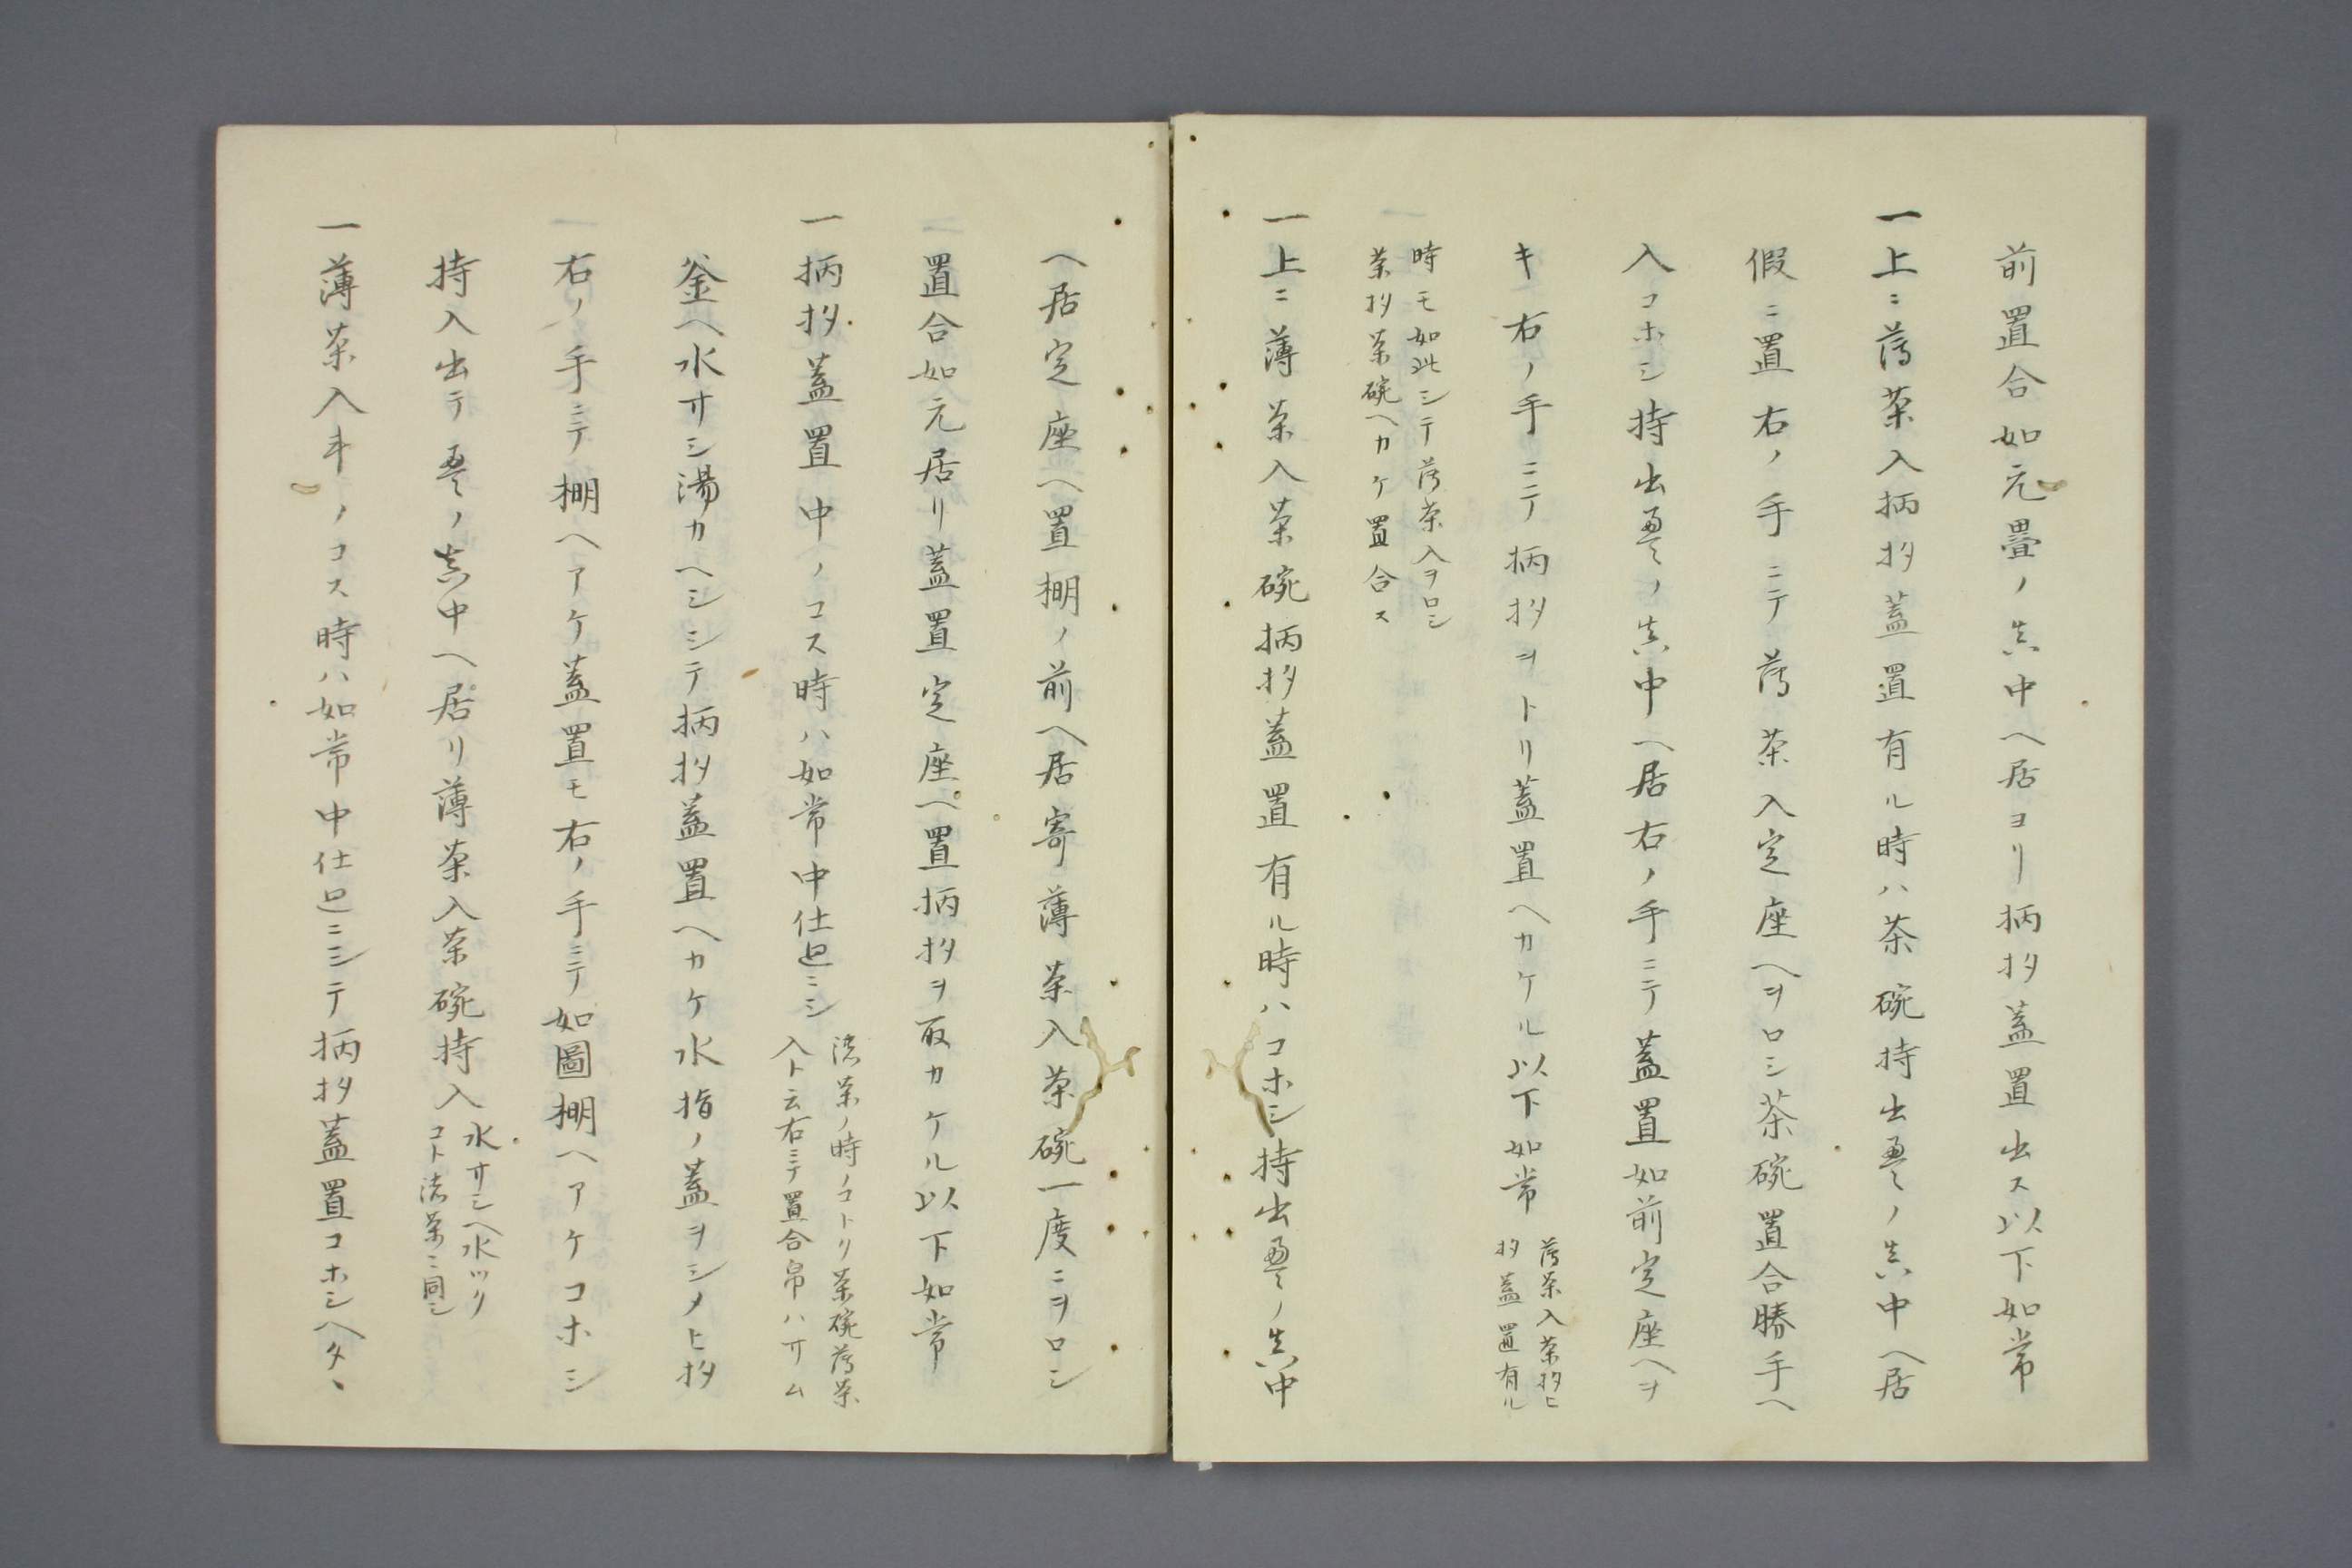 前置合如元畳ノ真中ヘ居ヨリ柄杓蓋置出ス以下如常
一上ニ薄茶入柄杓蓋置有ル時ハ茶碗持出畳ノ真中ヘ居
假ニ置右ノ手ニテ薄茶入定座ヘヲロシ茶碗置合勝手ヘ
入コホシ持出畳ノ真中ヘ居右ノ手ニテ蓋置如前定座ヘヲ
キ右ノ手ニテ柄杓ヲトリ蓋置ヘカケル以下如常
薄茶入茶杓ヒ
杓蓋置有ル
時モ如此シテ薄茶入ヲロシ
茶杓茶碗ヘカケ置合ス
一上ニ薄茶入茶碗柄杓蓋置有ル時ハコホシ持出畳ノ真中
ヘ居定座ヘ置棚ノ前ヘ居寄薄茶入茶碗一度ニヲロシ
置合如元居リ蓋置定座ヘ置柄杓ヲ取カケル以下如常
一柄杓蓋置中ノコス時ハ如常中仕廻ニシ
濃茶ノ時ノコトリ茶碗薄茶
入ト云右ニテ置合帛ハサム
釜ヘ水サシ湯カヘシシテ柄杓蓋置ヘカケ水指ノ蓋ヲシメヒ杓
右ノ手ニテ棚ヘアケ蓋置モ右ノ手ニテ如圖棚ヘアケコホシ
持入出テ畳ノ真中ヘ居リ薄茶入茶碗持入
水サシヘ水ツリ
コト濃茶ニ同シ
一薄茶入キノコス時ハ如常中仕廻ニシテ柄杓蓋置コホシヘタヽ